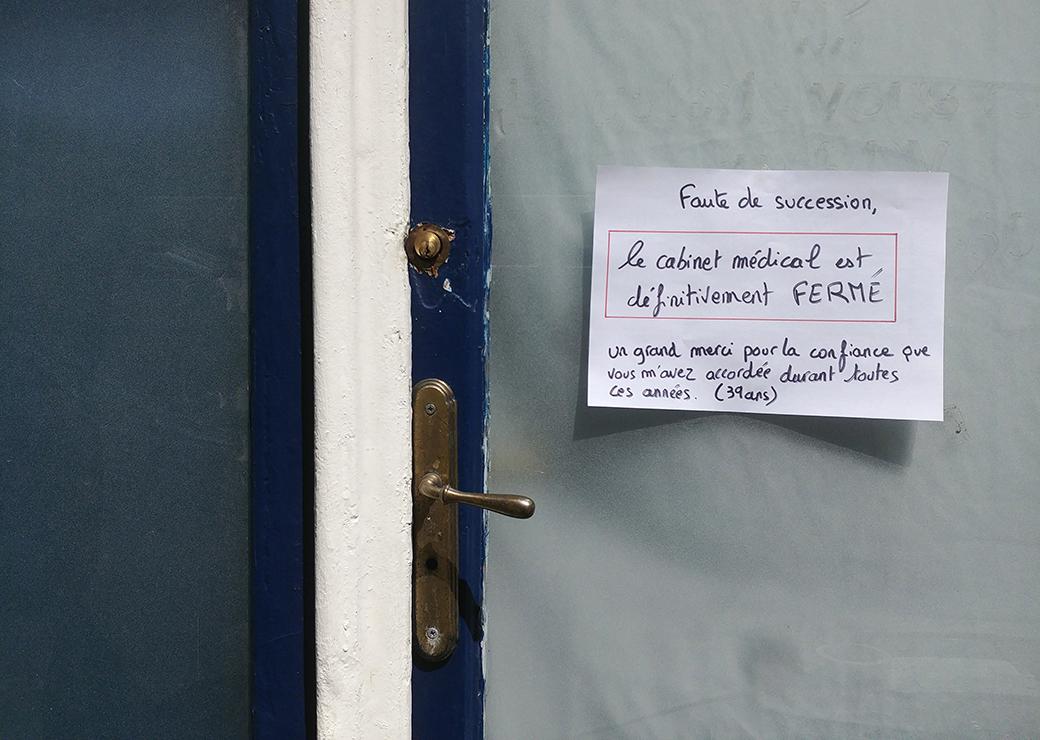 Faute de succession,
le cabinet médical est
définitivement FERMÉ
un grand merci pour la confiance que
vous m'avez accordée durant toutes
ces années. (39ans)